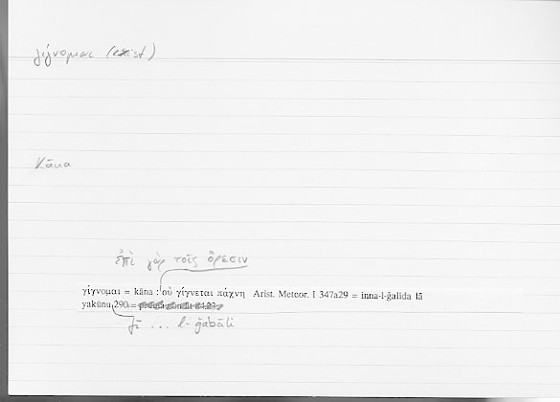 γίγνομαι (exist)
kāna
ἐπὶ γὰρ τοῖς ὄρεσιν
γίγνομαι = kāna : οὐ γίγνεται πάχνη Arist. Meteor. I 347a29 = inna-l-ǧalīda lā
yakūnu 290 =
fī ... l-ǧabāli